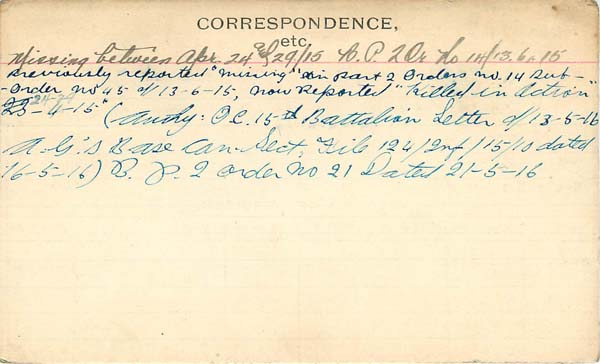 CORRESPONDENCE,
etc.
Missing between Apr. 24 & 29/15 B. P. 2 Or. No 14/13.6.15
previously reported "missing" in part 2 Orders no. 14 Sub-
-Order no 45 d/13-6-15, now Reported "Killed in Action"
24-4-15"
(Authy: O.C. 15th Battalion Letter d/13-5-16
A.G.'s Base Can. Sect. File 124/2nf/15/10 dated
16-5-16) B. P. 2 order No 21 Dated 21-5-16.